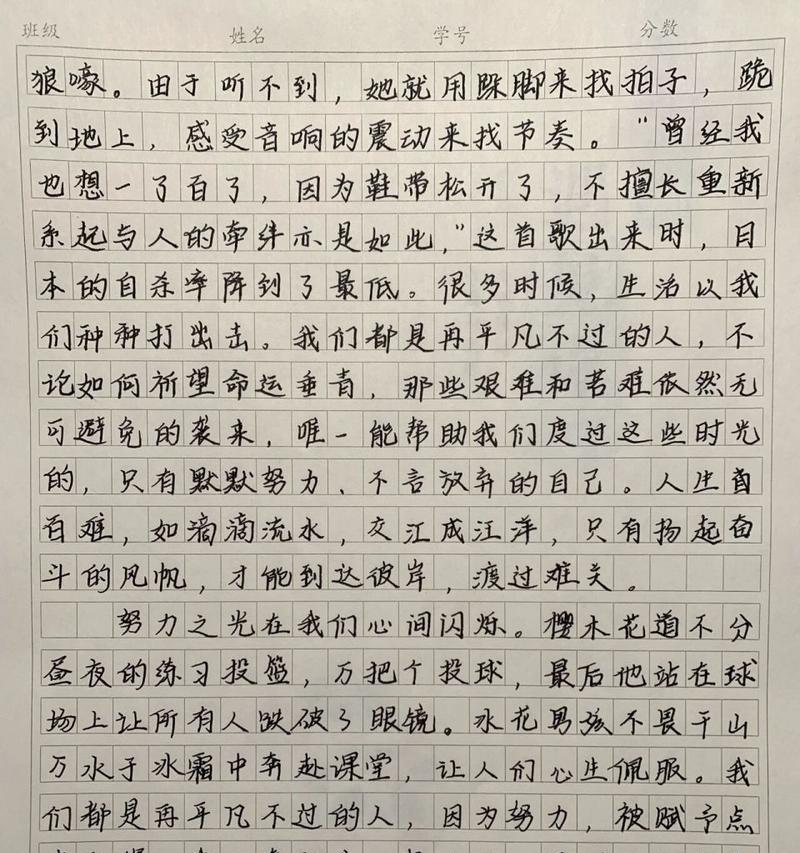 班级 姓名 学号 分数
狼嚎。由于听不到，她就用跺脚来找拍子，跪
到地上，感受音响的震动来找节奏。“曾经我
也想一了百了，因为鞋带松开了，不擅长重新
系起与人的牵绊亦是如此，”这首歌出来时，日
本的自杀率降到了最低。很多时候，生活以我
们种种打出击。我们都是再平凡不过的人，不
论如何祈望命运垂青，那些艰难和苦难依然无
可避免的袭来，唯一能帮助我们度过这些时光
的，只有默默努力、不言放弃的自己。人生自
百难，如滴滴流水，交江成汪洋，只有扬起奋
斗的风帆，才能到达彼岸，渡过难关。
努力之光在我们心间闪烁。樱木花道不分
昼夜的练习投篮，万把个投球，最后他站在球
场上让所有人跌破了眼镜。冰花男孩不畏千山
万水于冰霜中奔赴课堂，让人们心生佩服。我
们都是再平凡不过的人，因为努力，被赋予点